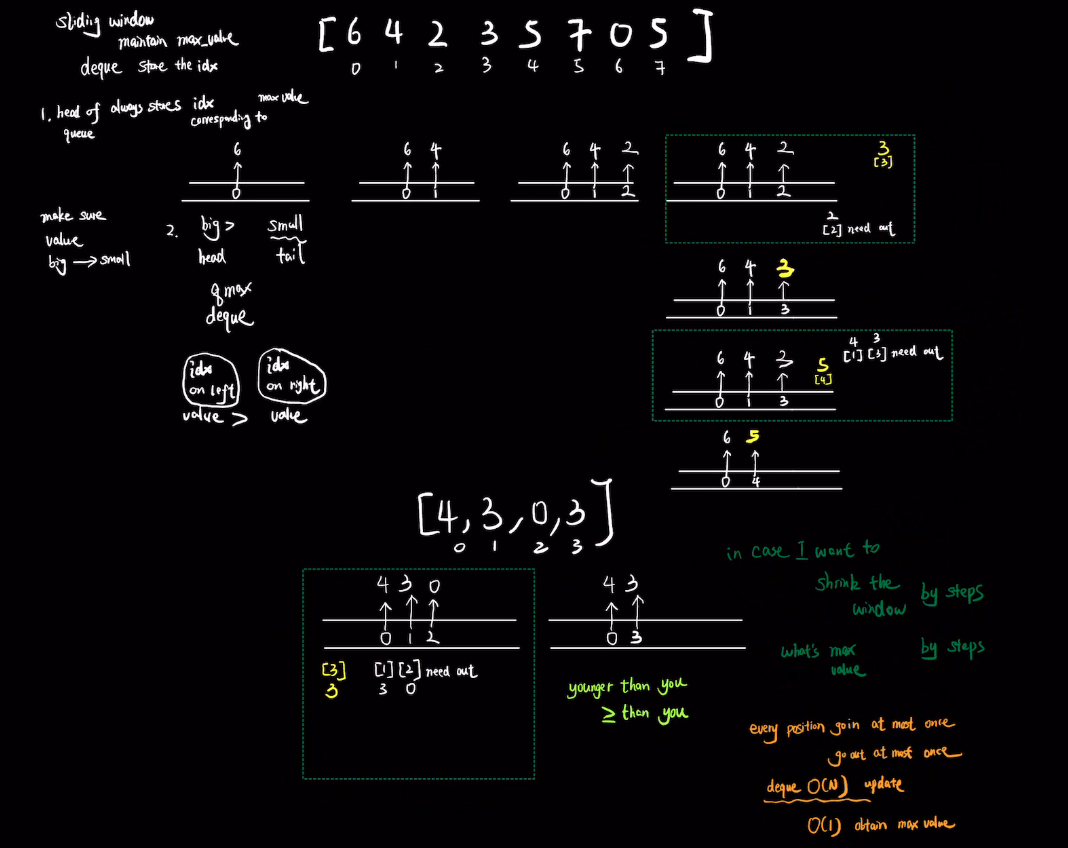 sliding window
maintain max_value
deque store the idx
[ 6 4 2 3 5 7 0 5 ]
0 1 2 3 4 5 6 7
1. head of queue always stores idx corresponding to max value
6
0
6 4
0 1
6 4 2
0 1 2
6 4 2
0 1 2
3
[3]
2
[2] need out
make sure
value
big → small
2. big > small
head tail
qmax
deque
idx on left
idx on right
value > value
6 4 3
0 1 3
6 4 3
0 1 3
5
[4]
4 3
[1] [3] need out
6 5
0 4
[4, 3, 0, 3]
0 1 2 3
4 3 0
0 1 2
[3] [1] [2] need out
3 3 0
4 3
0 3
younger than you
≥ than you
in case I want to
shrink the window by steps
what's max value by steps
every position go in at most once
go out at most once
deque O(N) update
O(1) obtain max value